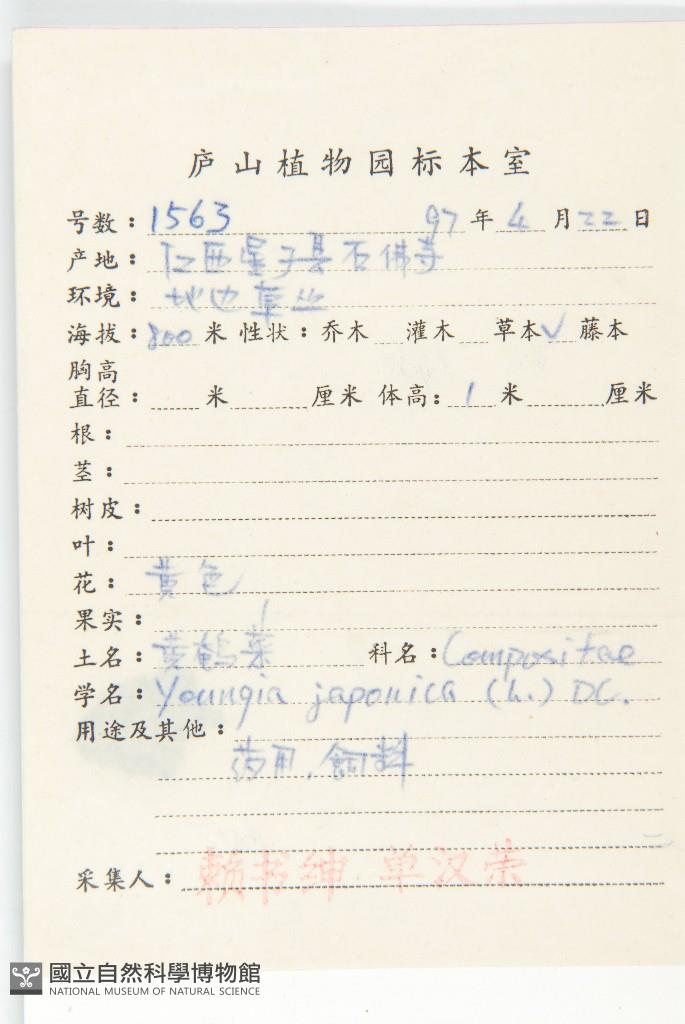 庐山植物园标本室
号数：1563 97年4月22日
产地：江西星子县石佛寺
环境：地边草丛
海拔：800米 性状：乔木 灌木 草本√ 藤本
胸高
直径： 米 厘米 体高：1米 厘米
根：
茎：
树皮：
叶：
花：黄色
果实：
土名：黄鹌菜 科名：Compositae
学名：Youngia japonica (L.) DC.
用途及其他：
药用，飼料
采集人：赖书绅 单汉荣
國立自然科學博物館
NATIONAL MUSEUM OF NATURAL SCIENCE